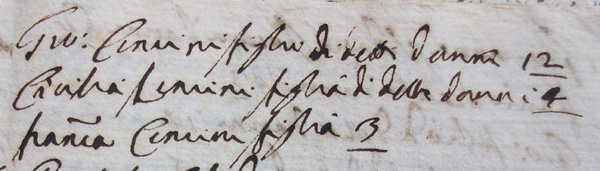 Gio: Cencini figlio di detti d'anni 12
Cicilia Cencini figlia di detti d'anni 9
Franc.a Cencini figlia 3